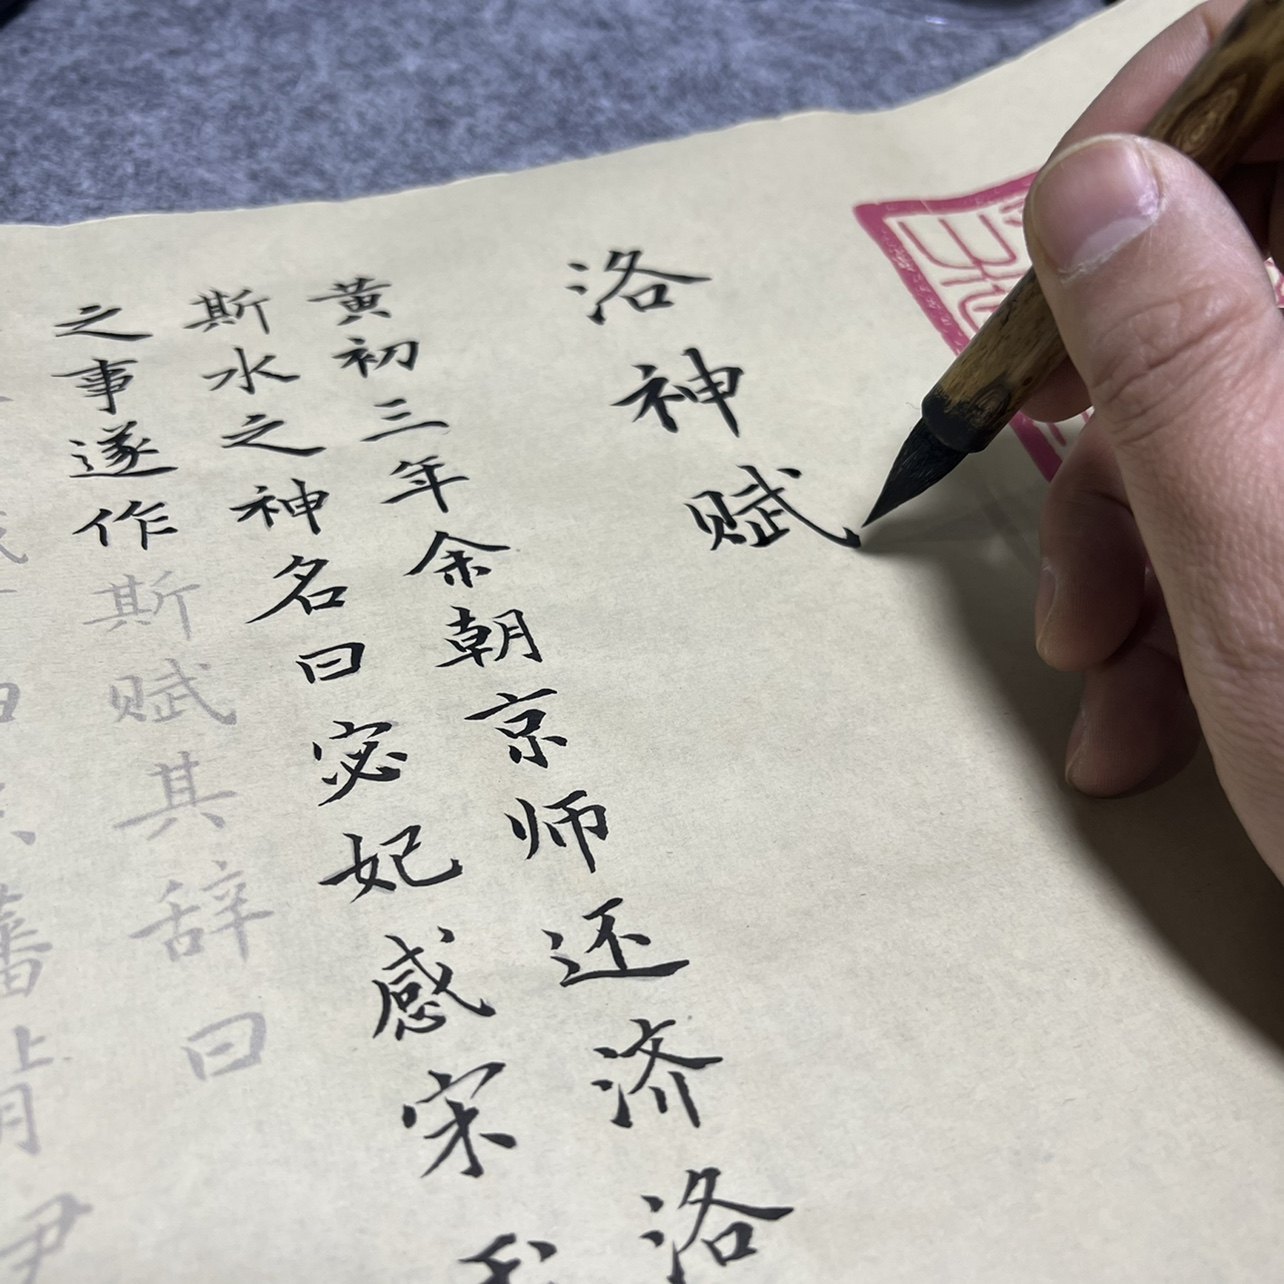 洛神赋
黄初三年余朝京师还济洛
斯水之神名曰宓妃感宋
之事遂作斯赋其辞曰
藩背